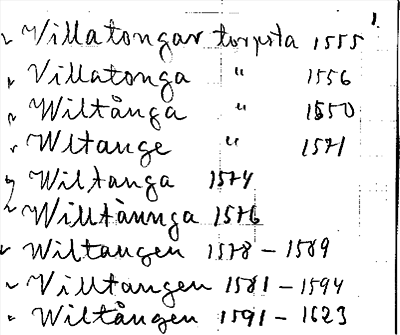 1.
Villatongar torpsta 1555
Villatonga " 1556
Wiltånga " 1550
Wltange " 1571
Wiltanga 1574
Willtånnga 1576
Wiltangen 1578 – 1589
Villtangen 1581 – 1594
Wiltången 1591 – 1623